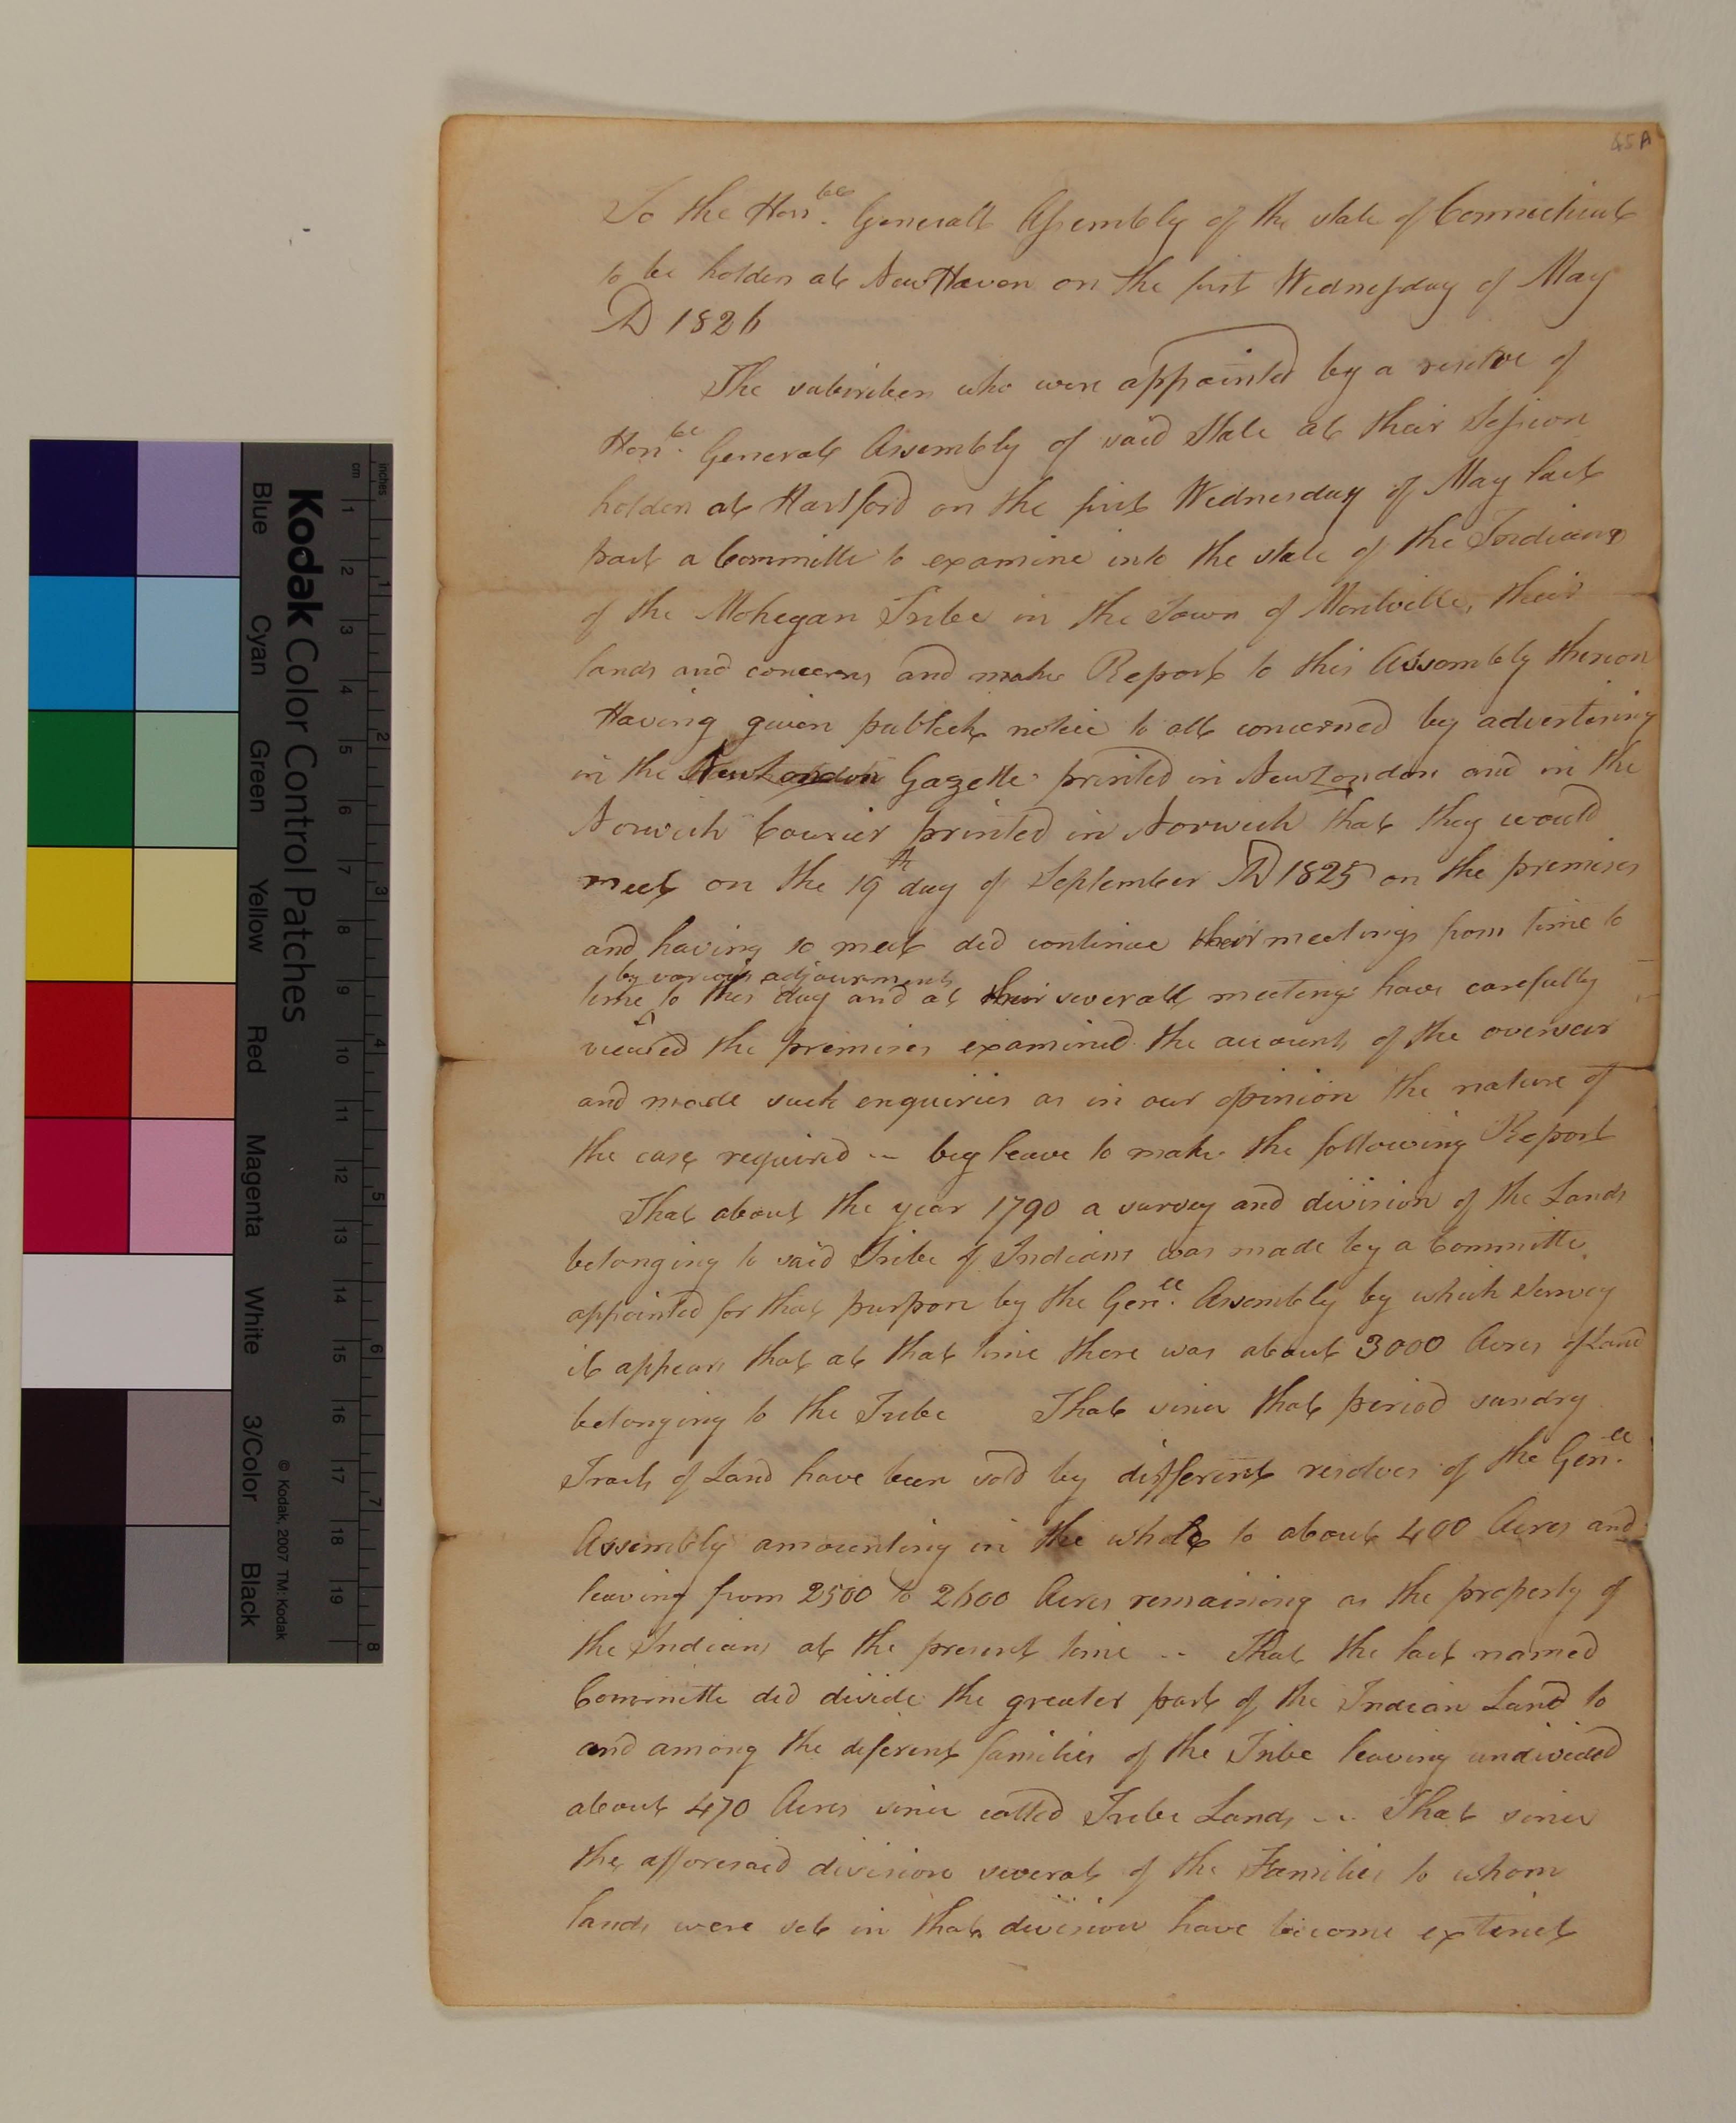 45A
To the Hon.ble Generall Assembly of the state of Connecticut
to be holden at New Haven on the first Wednesday of May
AD 1826
The subscribers who were appointed by a resolve of
Hon.ble General Assembly of said State at their Session
holden at Hartford on the first Wednesday of May last
past a Committe to examine into the state of the Indians
of the Mohegan Tribe in the Town of Montville, their
lands and concerns and make Report to this Assembly thereon
Having given publick notice to all concerned by advertising
in the New London Gazette printed in New London and in the
Norwich Courier printed in Norwich that they would
meet on the 19th day of September AD 1825 on the premises
and having so meet did continue their meetings from time to
by various adjournments
time to this day and at their severall meetings have carefully
viewed the premises examined the accounts of the overseer
and made such enquiries as in our opinion the nature of
the case required -- beg leave to make the following Report
That about the year 1790 a survey and division of the Lands
belonging to said Tribe of Indians was made by a Committe
appointed for that purpose by the Gen.ll Assembly by which Survey
it appears that at that time there was about 3000 Acres of Land
belonging to the Tribe That since that period sundry
Tracts of Land have been sold by different resolves of the Gen.ll
Assembly amounting in the whole to about 400 Acres and
leaving from 2500 to 2600 Acres remaining as the property of
the Indians at the present time -- That the last named
Committe did divide the greater part of the Indian Land to
and among the diferent families of the Tribe leaving undivided
about 470 Acres since called Tribe Lands -- That since
the afforesaid division several of the Families to whom
lands were set in that division have become extinct
inches
cm
1
2
3
4
5
6
7
8
9
10
11
12
13
14
15
16
17
18
19
1
2
3
4
5
6
7
8
Kodak Color Control Patches
© Kodak, 2007 TM: Kodak
Blue
Cyan
Green
Yellow
Red
Magenta
White
3/Color
Black